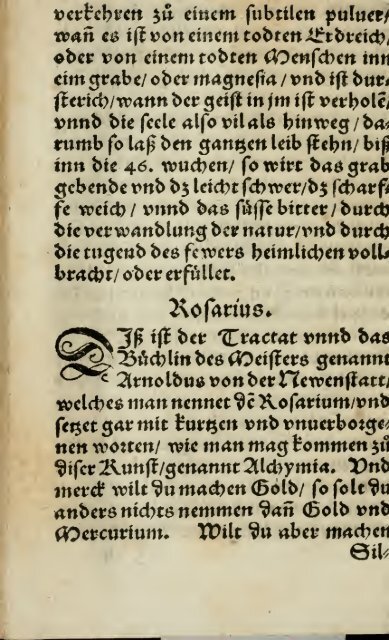 verkehren zů einem subtilen puluer/
wañ es ist von einem todten Erdreich/
oder von einem todten Menschen inn
eim grabe/ oder magnesia / vnd ist dur-
sterich/ wann der geist in jm ist verholẽ/
vnnd die seele also vil als hinweg / da-
rumb so laß den gantzen leib stehn/ biß
inn die 46. wuchen/ so wirt das grab
gebende vnd dz leicht schwer/ dz scharf-
fe weich / vnnd das süsse bitter / durch
die verwandlung der natur/ vnd durch
die tugend des fewers heimlichen voll-
bracht/ oder erfüllet.
Rosarius.
DIß ist der Tractat vnnd das
Büchlin des Meisters genannt
Arnoldus von der Newenstatt/
welches man nennet dẽ Rosarium/ vnd
setzet gar mit kurtzen vnd vnuerborge-
nen worten/ wie man mag kommen zů
diser Kunst/ genannt Alchymia. Vnd
merck wilt du machen Gold/ so solt du
anders nichts nemmen dañ Gold vnd
Mercurium. Wilt du aber machen
Sil-